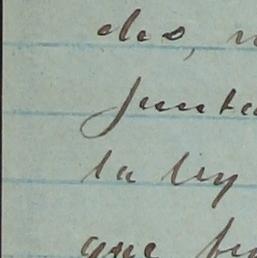 dos,
junta
la ley
que